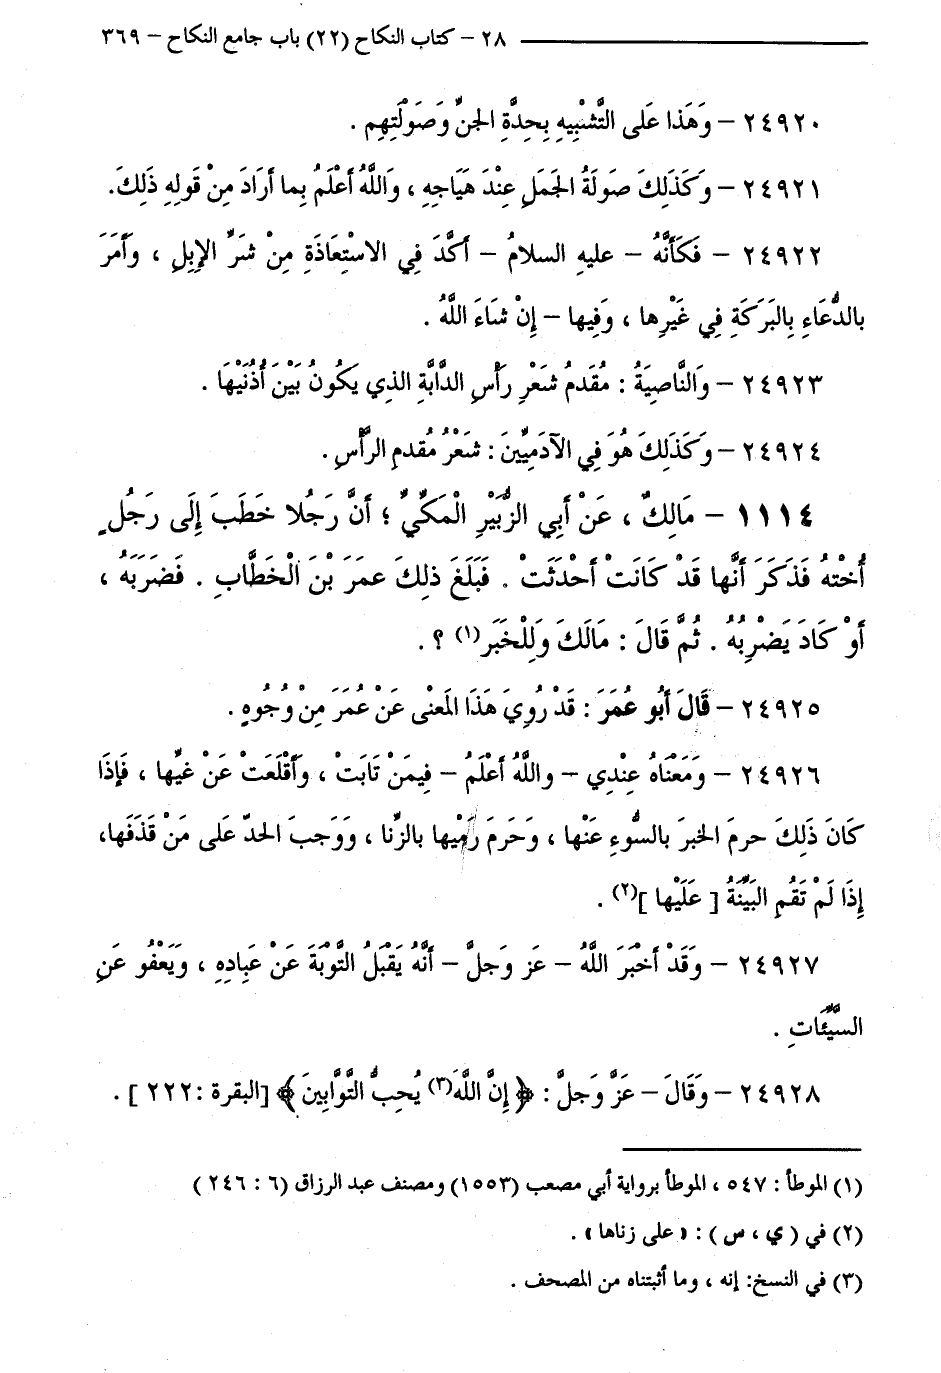 ٢٨ - كتاب النكاح (٢٢) باب جامع النكاح - ٣٦٩
٢٤٩٢٠ - وَهَذا عَلى التَّشْبِيهِ بِحِدَّةِ الجنِّ وَصَوْلَتِهِم .
٢٤٩٢١ - وَكَذَلِكَ صَوْلَةُ الجَمَلِ عِنْدَ هَيَاجِهِ ، وَاللَّهُ أَعْلَمُ بِما أرَادَ مِنْ قَولِهِ ذَلِكَ.
٢٤٩٢٢ - فَكَأنَّهُ - عليهِ السلامُ - أكَّدَ فِي الاسْتِعَاذَةِ مِنْ شَرِّ الإِبِلِ ، وَأمَرَ
بالدُّعَاءِ بِالبَرَكَةِ فِي غَيْرِها ، وَفِيها - إنْ شَاءَ اللَّهُ .
٢٤٩٢٣ - وَالنَّاصِيَةُ : مُقَدمُ شَعْرِ رَأْسِ الدَّابَّةِ الذِي يَكُونُ بَيْنَ أُذُنَيْهَا .
٢٤٩٢٤ - وَكَذَلِكَ هُوَ فِي الآدَمِيِّينَ : شَعْرُ مُقدمِ الرَّأْسِ .
١١١٤ - مَالِكٌ ، عَنْ أَبِي الزُّبَيْرِ الْمَكِّيِّ ؛ أَنَّ رَجُلا خَطَبَ إِلَى رَجُلٍ
أُخْتَهُ فَذَكَرَ أَنَّها قَدْ كَانَتْ أَحْدَثَتْ . فَبَلَغَ ذلِكَ عمَرَ بْنَ الْخَطَّابِ . فَضَرَبَهُ ،
أَوْ كَادَ يَضْرِبُهُ . ثُمَّ قَالَ : مَالَكَ وَلِلْخَبَرِ(١) ؟ .
٢٤٩٢٥ - قَالَ أَبُو عُمَرَ : قَدْ رُوِيَ هَذَا المَعْنَى عَنْ عُمَرَ مِنْ وُجُوهٍ .
٢٤٩٢٦ - وَمَعْنَاهُ عِنْدِي - واللَّهُ أعْلَمُ - فِيمَنْ تَابَتْ ، وَأقْلَعَتْ عَنْ غَيِّها ، فَإِذَا
كَانَ ذَلِكَ حرمَ الخبرَ بالسُّوءِ عَنْها ، وَحَرمَ رَمْيها بالزِّنا ، وَوَجبَ الحدّ عَلى مَنْ قَذَفَها،
إِذَا لَمْ تَقُمِ البَيِّنَةُ [ عَلَيْها ](٢) .
٢٤٩٢٧ - وَقَدْ أخْبَرَ اللَّهُ - عَز وَجلَّ - أنَّهُ يَقْبَلُ التَّوْبَةَ عَنْ عِبَادِهِ ، وَيَعْفُو عَنِ
السَّيِّئَاتِ .
٢٤٩٢٨ - وَقَالَ - عَزَّ وَجلَّ : ﴿ إِنَّ اللَّهَ(٣) يُحِبُّ التَّوَّابِينَ ﴾ [البقرة : ٢٢٢ ] .
(١) الموطأ : ٥٤٧ ، الموطأ برواية أبي مصعب (١٥٥٣) ومصنف عبد الرزاق (٦ : ٢٤٦ )
(٢) في ( ي ، س ) : « على زناها » .
(٣) في النسخ: إنه ، وما أثبتناه من المصحف .